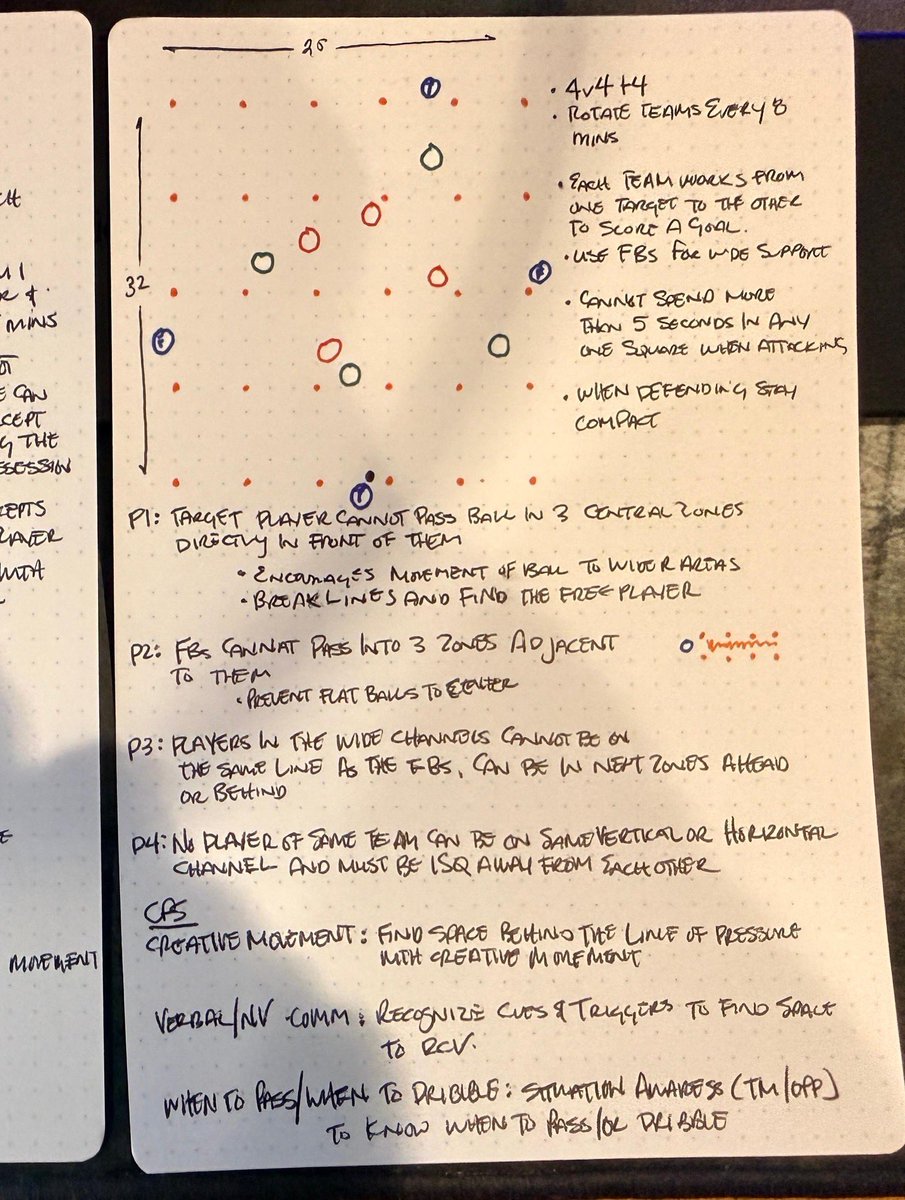 CH
M1
R &
MINS
OT
E CAN
CCEPT
G THE
SSESSION
CEPTS
LAYER
WITH
E
MOVEMENT
32
• 4v4+4
• ROTATE TEAMS EVERY 8
MINS
• EACH TEAM WORKS FROM
ONE TARGET TO THE OTHER
TO SCORE A GOAL.
• USE FBS FOR WIDE SUPPORT
• CANNOT SPEND MORE
THAN 5 SECONDS IN ANY
ONE SQUARE WHEN ATTACKING
• WHEN DEFENDING STAY
COMPACT
T
F
F
T
P1: TARGET PLAYER CANNOT PASS BALL IN 3 CENTRAL ZONES
DIRECTLY IN FRONT OF THEM
• ENCOURAGES MOVEMENT OF BALL TO WIDER AREAS
• BREAK LINES AND FIND THE FREE PLAYER
P2: FBS CANNAT PASS INTO 3 ZONES ADJACENT
TO THEM
• PREVENT FLAT BALLS TO CENTER
P3: PLAYERS IN THE WIDE CHANNELS CANNOT BE ON
THE SAME LINE AS THE FBS, CAN BE IN NEXT ZONES AHEAD
OR BEHIND
P4: NO PLAYER OF SAME TEAM CAN BE ON SAME VERTICAL OR HORIZONTAL
CHANNEL AND MUST BE 1SQ AWAY FROM EACH OTHER
CPS
CREATIVE MOVEMENT: FIND SPACE BEHIND THE LINE OF PRESSURE
WITH CREATIVE MOVEMENT
VERBAL/NV COMM: RECOGNIZE CUES & TRIGGERS TO FIND SPACE
TO RCV.
WHEN TO PASS/WHEN TO DRIBIBLE: SITUATION AWARESS (TM/OPP)
TO KNOW WHEN TO PASS/OR DRIBIBLE